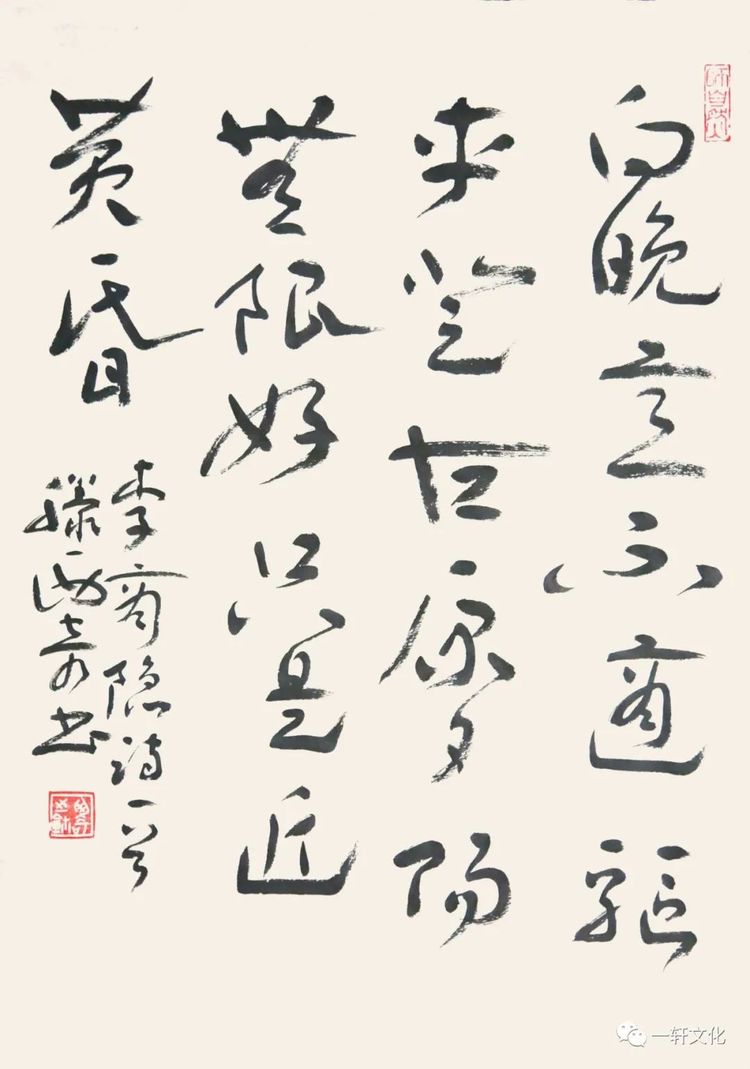 向晚意不適驅
車登古原夕陽
無限好只是近
黄昏
李商隐詩一首
滕西奇书
一轩文化